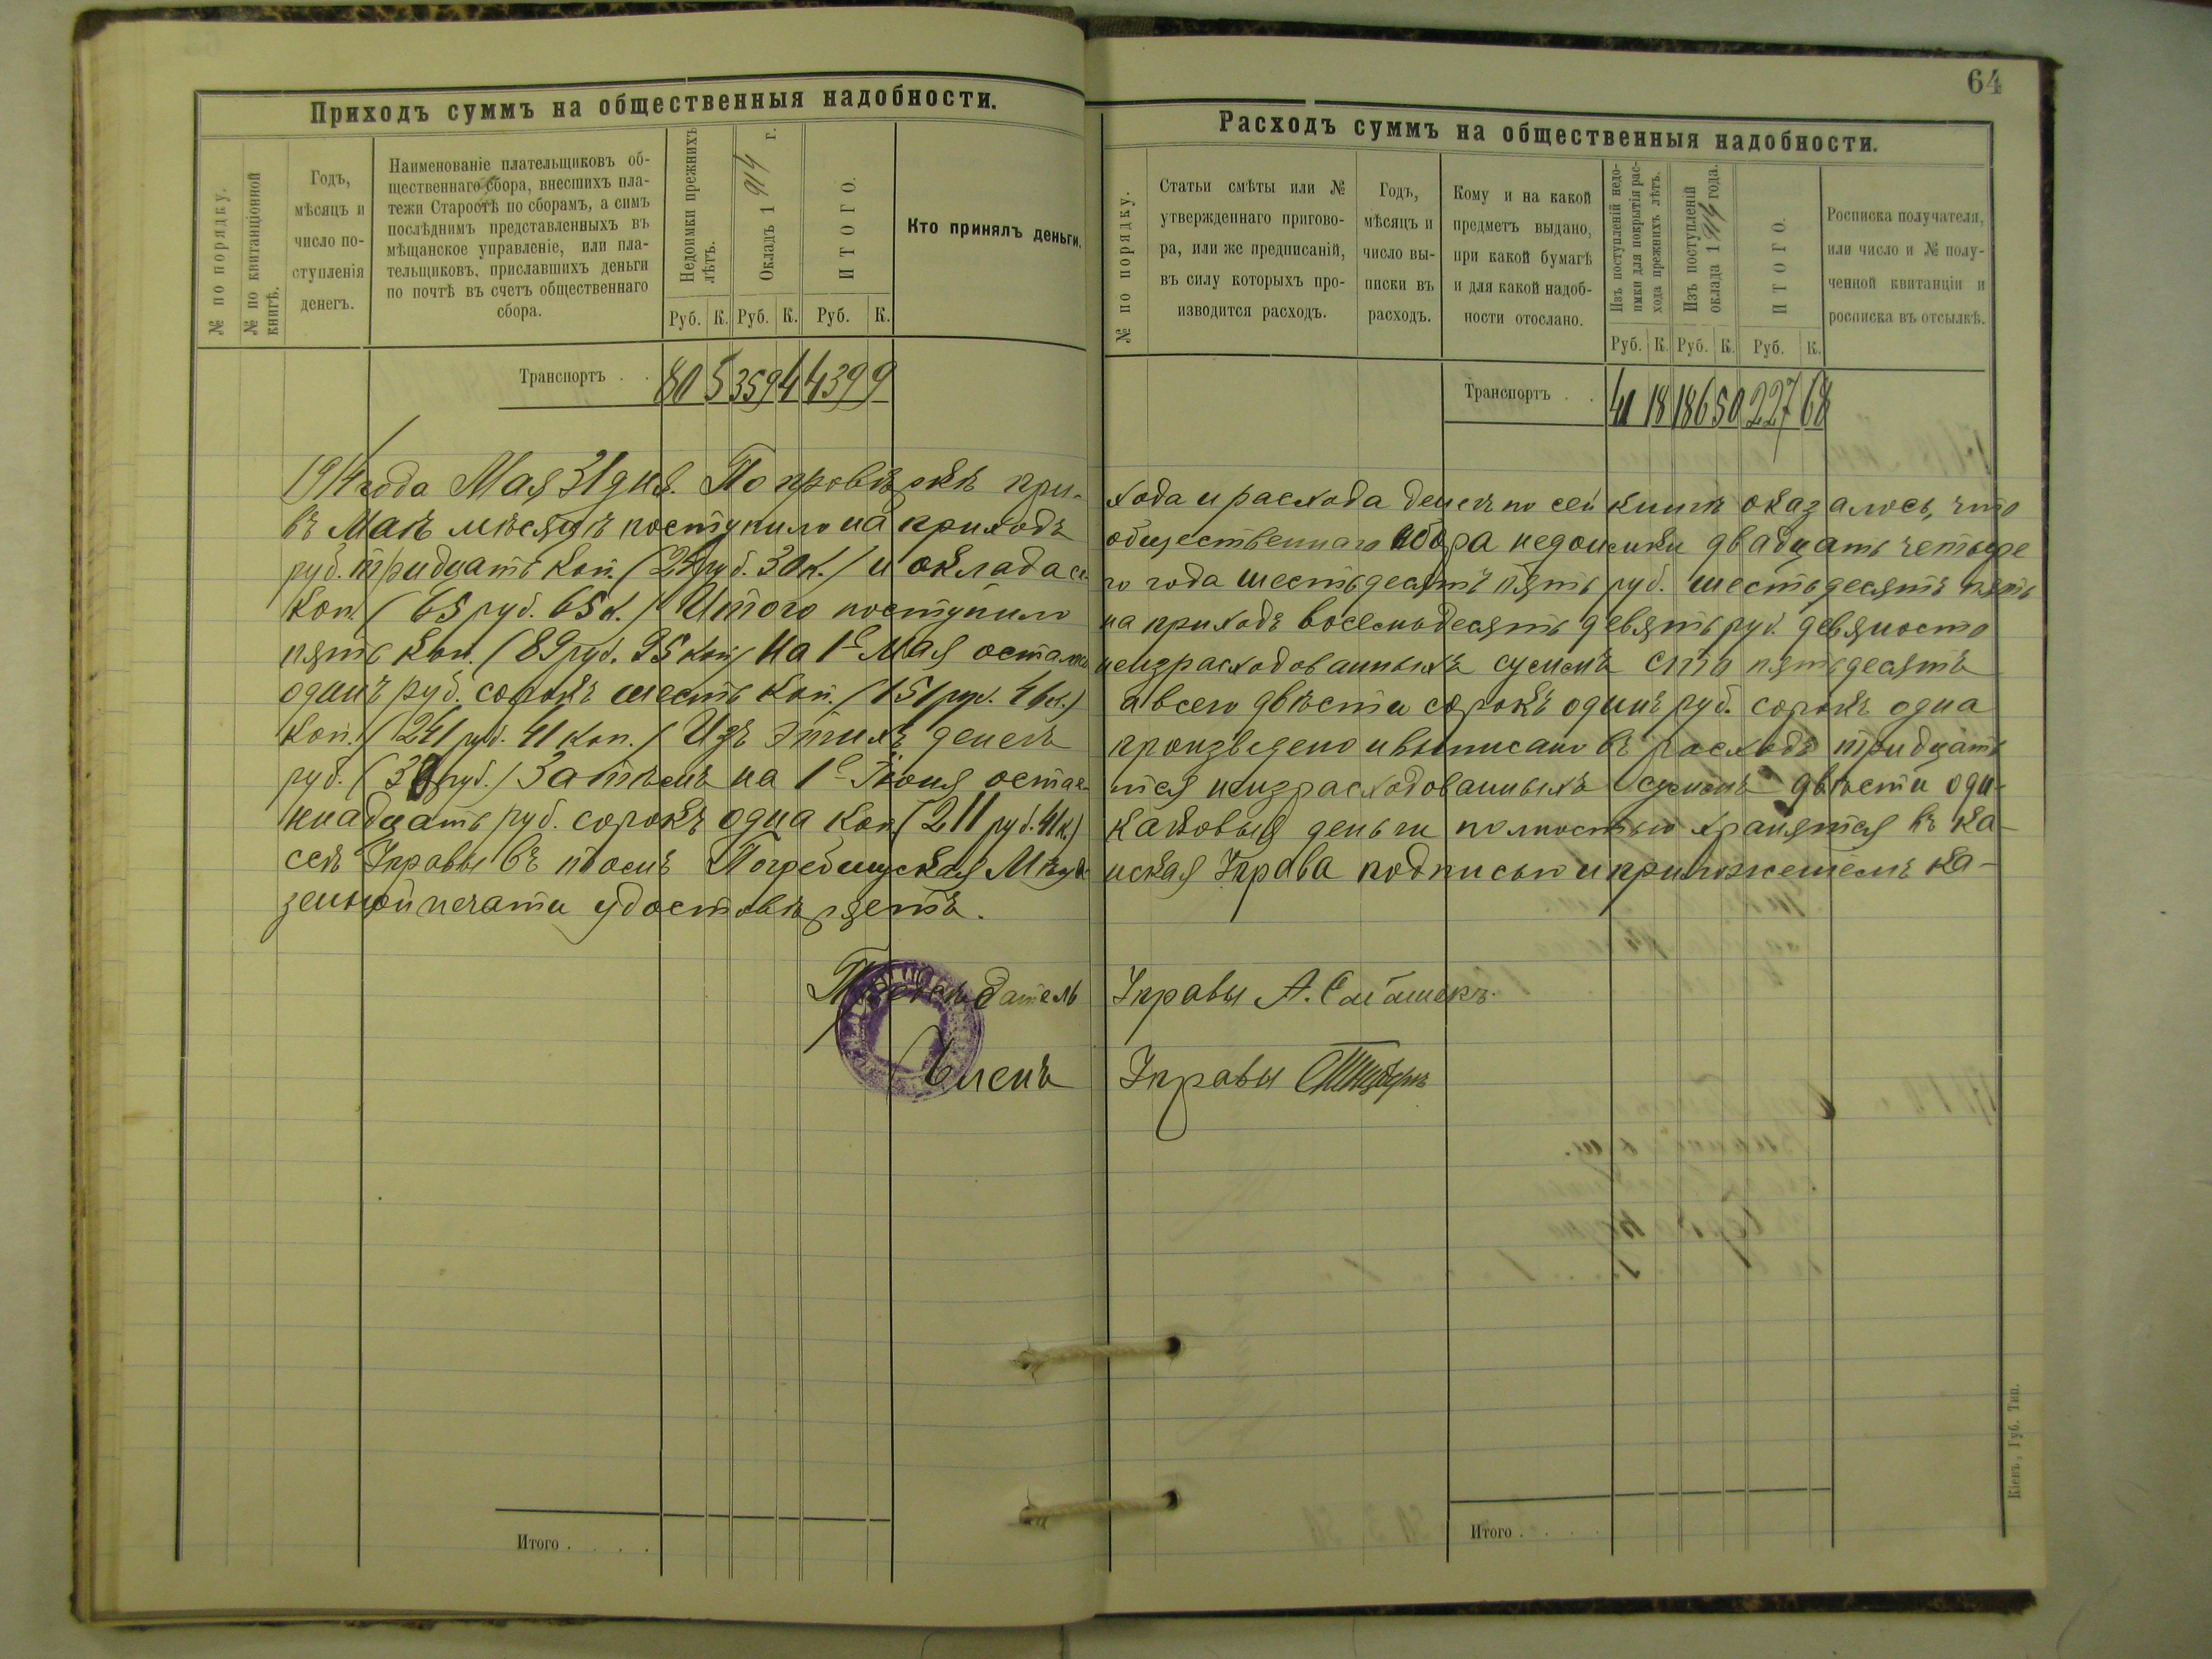 64
Приходъ суммъ на общественныя надобности.
№ по порядку.
№ по квитанціонной
книгѣ.
Годъ,
мѣсяцъ и
число по-
ступленія
денегъ.
Наименованіе плательщиковъ об-
щественнаго сбора, внесшихъ пла-
тежи Старостѣ по сборамъ, а симъ
послѣднимъ представленныхъ въ
мѣщанское управленіе, или пла-
тельщиковъ, приславшихъ деньги
по почтѣ въ счетъ общественнаго
сбора.
Недоимки прежнихъ
лѣтъ.
Окладъ 1914 г.
ИТОГО.
Кто принялъ деньги.
Руб. К. Руб. К. Руб. К.
Транспортъ . . 80 5 359 4 439 9
Расходъ суммъ на общественныя надобности.
№ по порядку.
Статьи смѣты или №
утвержденнаго пригово-
ра, или же предписаній,
въ силу которыхъ про-
изводится расходъ.
Годъ,
мѣсяцъ и
число вы-
писки въ
расходъ.
Кому и на какой
предметъ выдано,
при какой бумагѣ
и для какой надоб-
ности отослано.
Изъ поступленій недо-
имки для покрытія рас-
хода прежнихъ лѣтъ.
Изъ поступленій
оклада 1914 года.
ИТОГО.
Росписка получателя,
или число и № полу-
ченной квитанціи и
росписка въ отсылкѣ.
Руб. К. Руб. К. Руб. К.
Транспортъ . . 41 18 186 50 227 68
1914 года Мая 31 дня. По провѣркѣ при- хода и расхода денегъ по сей книгѣ оказалось, что
въ Маѣ мѣсяцѣ поступило на приходъ общественнаго сбора недоимки двадцать четыре
руб. тридцать коп. (24 руб. 30 к.) и оклада се го года шестьдесятъ пять руб. шестьдесятъ пять
коп. (65 руб. 65 к.) Итого поступило на приходъ восемьдесятъ девять руб. девяносто
пять коп. (89 руб. 95 коп.) На 1е Мая осталось неизрасходованныхъ суммъ сто пятьдесятъ
одинъ руб. сорокъ шесть коп. (151 руб. 46 к.) а всего двѣсти сорокъ одинъ руб. сорокъ одна
коп. (241 руб. 41 коп.) Изъ этихъ денегъ произведено и выписано въ расходъ тридцать
руб. (30 руб.) Затѣмъ на 1е Іюня остае тся неизрасходованныхъ суммъ двѣсти оди-
ннадцать руб. сорокъ одна коп. (211 руб. 41 к.) каковыя деньги полностью хранятся въ ка-
сѣ Управы въ чемъ Погребищская Мѣща нская Управа подписью и приложеніемъ ка-
зенной печати удостовѣряетъ.
Предсѣдатель Управы А.
Членъ Управы
Итого . . . .
Итого . . . .
Кіевъ, Губ. Тип.